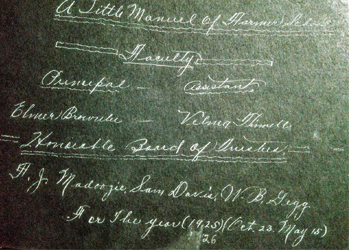 A Little Manuel of Farmer School
Faculty
Principal — Assistant
Elmer — Velma
Honorable Board of Trustees
A. J. Madoozie, Sam Davis, W. B. Gegg
For The year (1925) (Oct. 23. May 15)
26